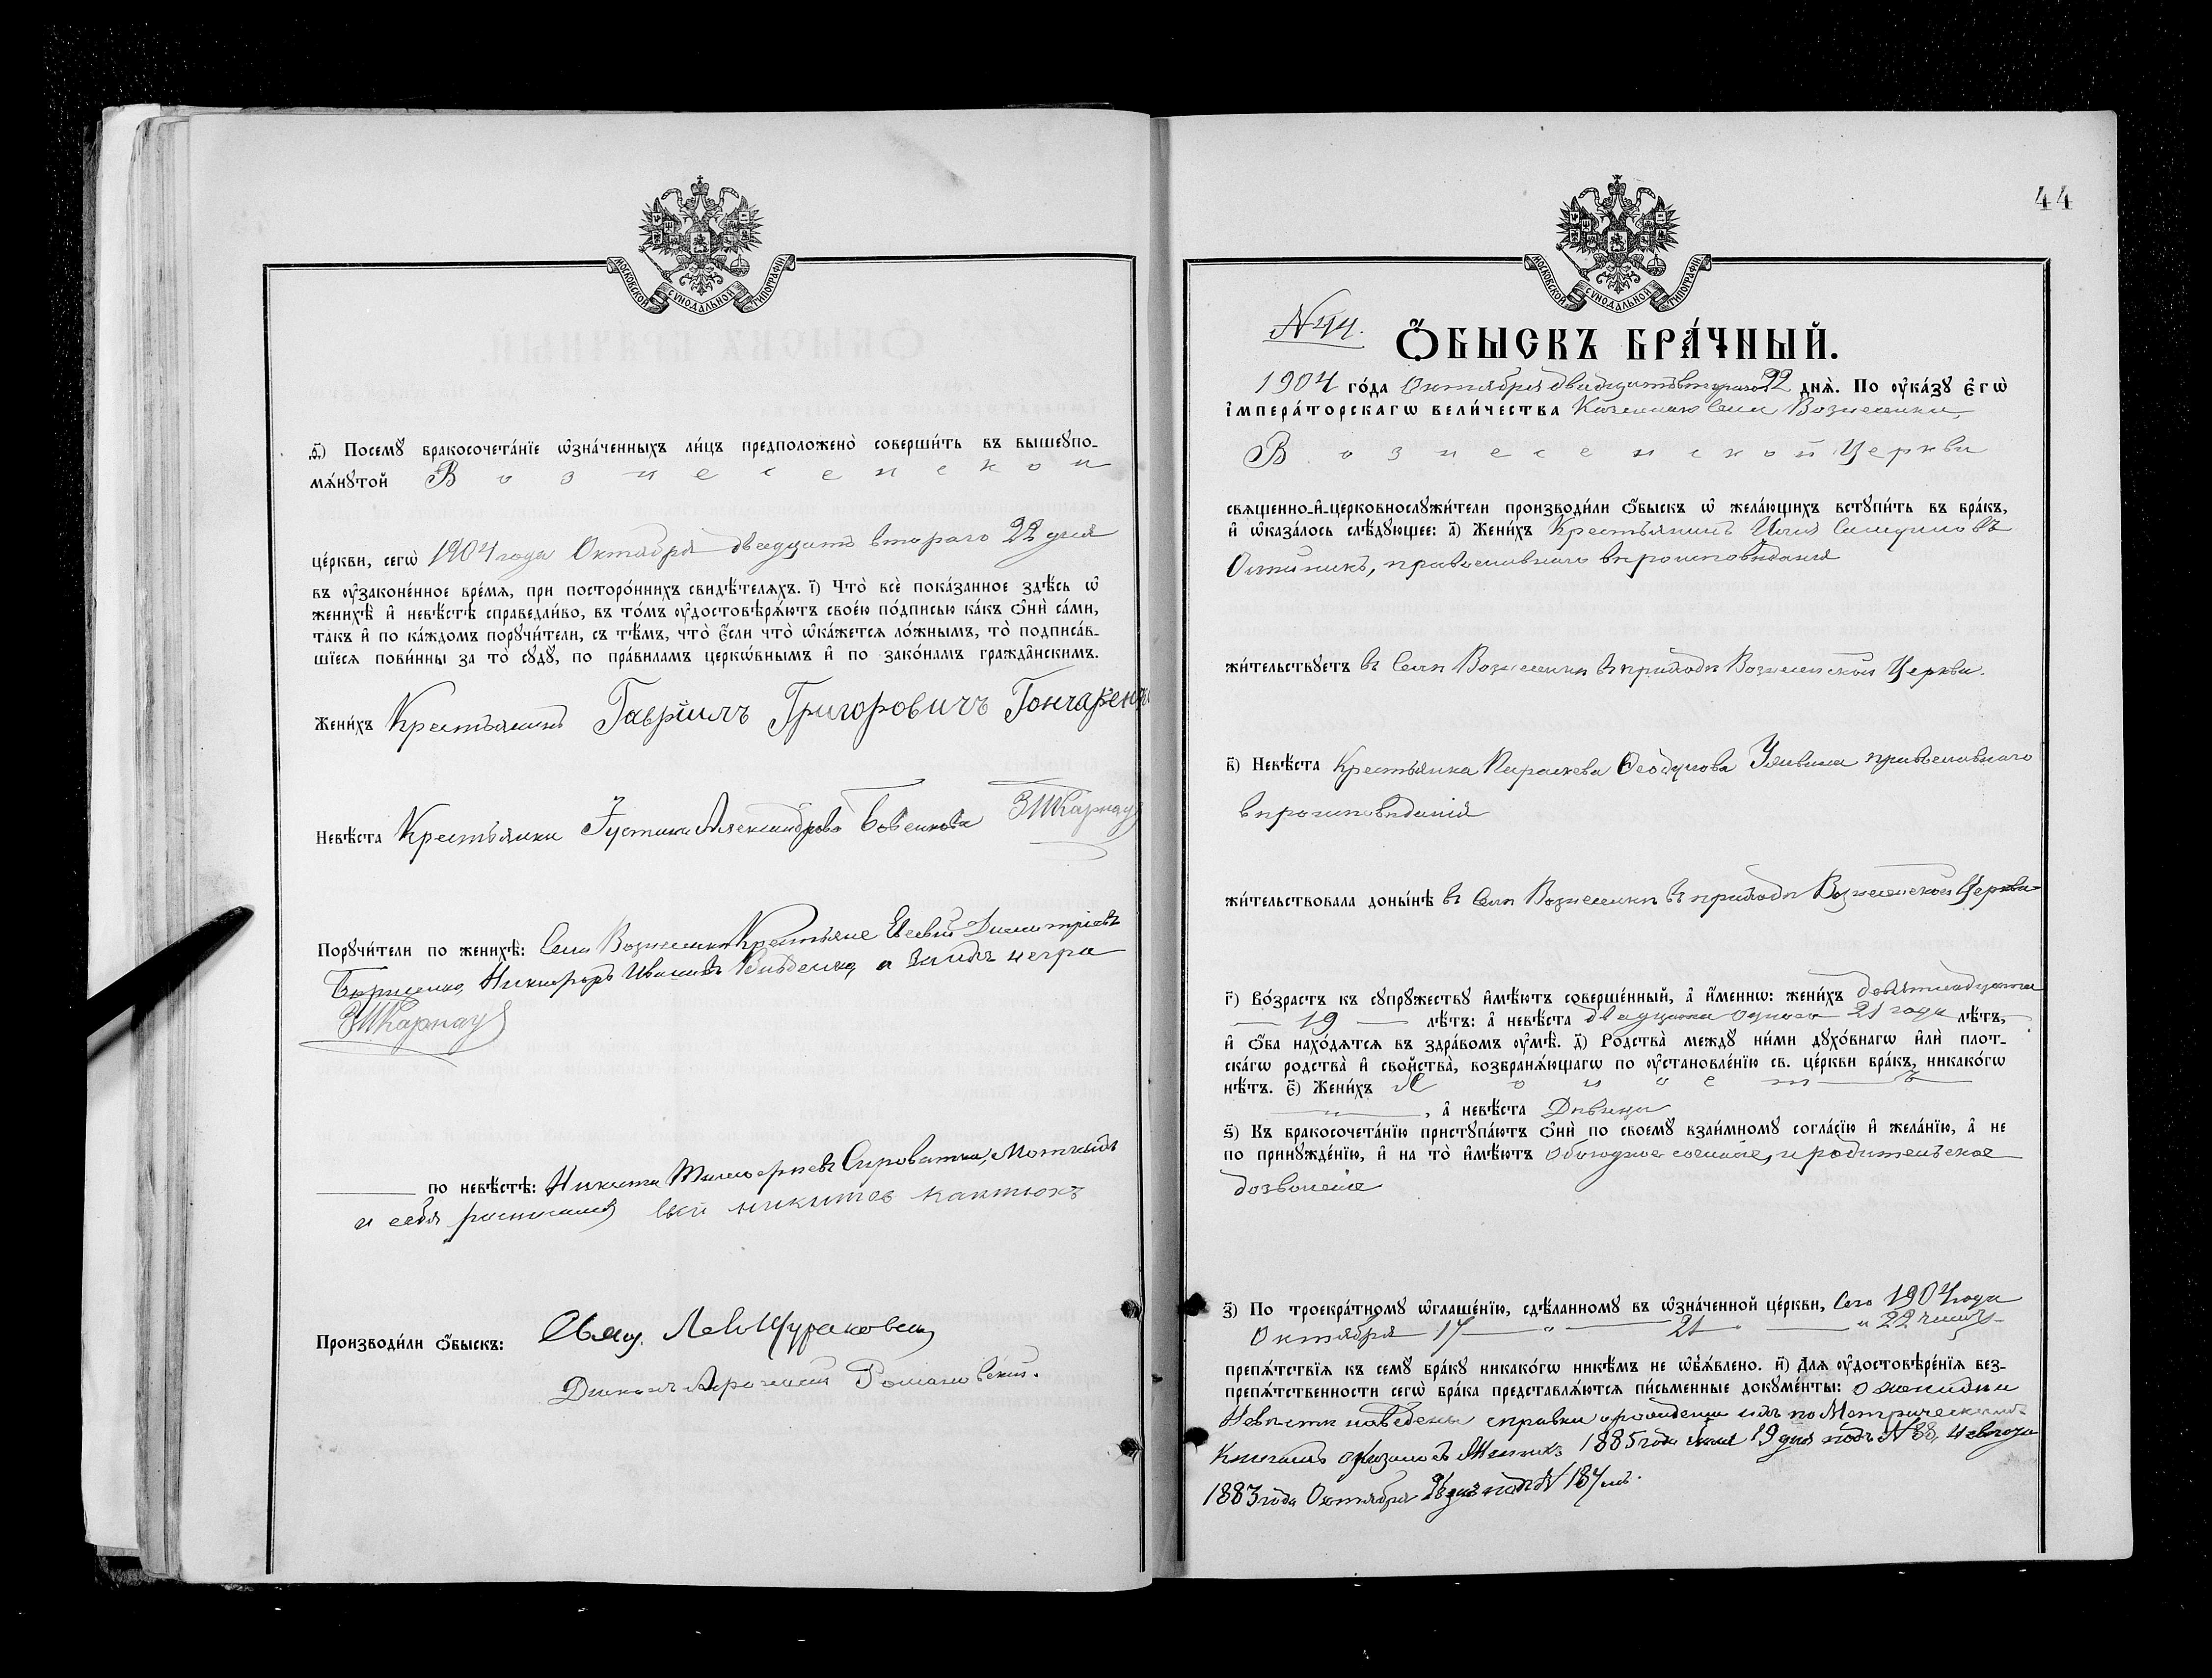 МОСКОВСКОЙ СѴНОДАЛЬНОЙ ТИПОГРАФІИ
ѳ҃) Посемꙋ бракосочета́нїе ѡ҆зна́ченныхъ ли́цъ предположено̀ соверши́ть въ вышеꙋпо-
мѧ́нꙋтой Вознесенской
це́ркви, сегѡ̀ 1904 года Октября двадцать втораго 22 дня
въ ᲂу҆зако́ненное вре́мѧ, при посторо́ннихъ свидѣ́телѧхъ. і҃) Что̀ всѐ пока́занное здѣ́сь ѡ҆
женихѣ̀ и҆ невѣ́стѣ справедли́во, въ то́мъ ᲂу҆достовѣрѧ́ютъ свое́ю по́дписью ка́къ ѻ҆нѝ са́ми,
та́къ и҆ по ка́ждомъ порꙋчи́тели, съ тѣ́мъ, что̀ є҆́сли что̀ ѡ҆ка́жетсѧ ло́жнымъ, то̀ подписа́в-
шїесѧ пови́нны за то̀ сꙋдꙋ̀, по пра́виламъ церко́внымъ и҆ по зако́намъ гражда́нскимъ.
Жени́хъ Крестьянинъ Гавріилъ Григоровичъ Гончаренко
Невѣ́ста Крестьянка Іустина Александрова
Порꙋчи́тели по женихѣ̀: Села Вознесенки Крестьяне Евсевій Димитріевъ
Никифоръ Ивановъ
по невѣ́стѣ: Никита Сироватка,
и себя росписался никитов
Производи́ли ѻ҆́быскъ: Свящ.
Романовскій.
44
МОСКОВСКОЙ СѴНОДАЛЬНОЙ ТИПОГРАФІИ
N 44.
Ѻ҆́БЫСКЪ БРА́ЧНЫЙ.
1904 го́да Октября двадцать втораго 22 днѧ̀. По ᲂу҆ка́зꙋ є҆гѡ̀
і҆мпера́торскагѡ вели́чества села Вознесенки,
Вознесенской Церкви
свѧщенно-и҆-церковнослꙋжи́тели производи́ли ѻ҆́быскъ ѡ҆ жела́ющихъ встꙋпи́ть въ бра́къ,
и҆ ѡ҆каза́лось слѣ́дꙋющее: а҃) Жени́хъ Крестьянинъ Илія
Олейникъ, православнаго вѣроисповѣданія
жи́тельствꙋетъ въ селѣ Вознесенки въ приходѣ Вознесенской Церкви.
в҃) Невѣ́ста Крестьянка Параскева Ѳеодулова православнаго
вѣроисповѣданія
жи́тельствовала доны́нѣ въ селѣ Вознесенки въ приходѣ Вознесенской Церкви
г҃) Во́зрастъ къ сꙋпрꙋ́жествꙋ и҆мѣ́ютъ соверше́нный, а҆ и҆́меннѡ: жени́хъ девятнадцати
19 лѣ́тъ: а҆ невѣ́ста двадцати одного 21 года лѣ́тъ,
и҆ ѻ҆́ба нахо́дѧтсѧ въ здра́вомъ ᲂу҆мѣ̀. д҃) Родства̀ междꙋ ни́ми дꙋхо́внагѡ и҆лѝ плот-
ска́гѡ родства̀ и҆ сво́йства, возбранѧ́ющагѡ по ᲂу҆становле́нїю св. це́ркви бра́къ, никако́гѡ
нѣ́тъ. є҃) Жени́хъ Холостъ
, а҆ невѣ́ста Дѣвица
ѕ҃) Къ бракосочета́нїю пристꙋпа́ютъ ѻ҆нѝ по своемꙋ̀ взаи́мномꙋ согла́сїю и҆ жела́нїю, а҆ не
по принꙋжде́нїю, и҆ на то̀ и҆мѣ́ютъ обоюдное согласіе, и родительское
дозволеніе
з҃) По троекра́тномꙋ ѡ҆глаше́нїю, сдѣ́ланномꙋ въ ѡ҆зна́ченной це́ркви, Сего 1904 года
Октября 17 " 21 " 22 числъ
препѧ́тствїѧ къ семꙋ̀ бра́кꙋ никако́гѡ никѣ́мъ не ѡ҆б̾ѧ́влено. и҃) Длѧ ᲂу҆достовѣре́нїѧ без-
препѧ́тственности сегѡ̀ бра́ка представлѧ́ютсѧ пи́сьменные докꙋме́нты: о женихѣ и
Невѣстѣ наведены справки о рожденіи ихъ по Метрическимъ
Книгамъ оказалось Женихъ 1885 года Іюля 19 дня подъ № 88, Невѣста
1883 года Октября подъ № 187 мъ.